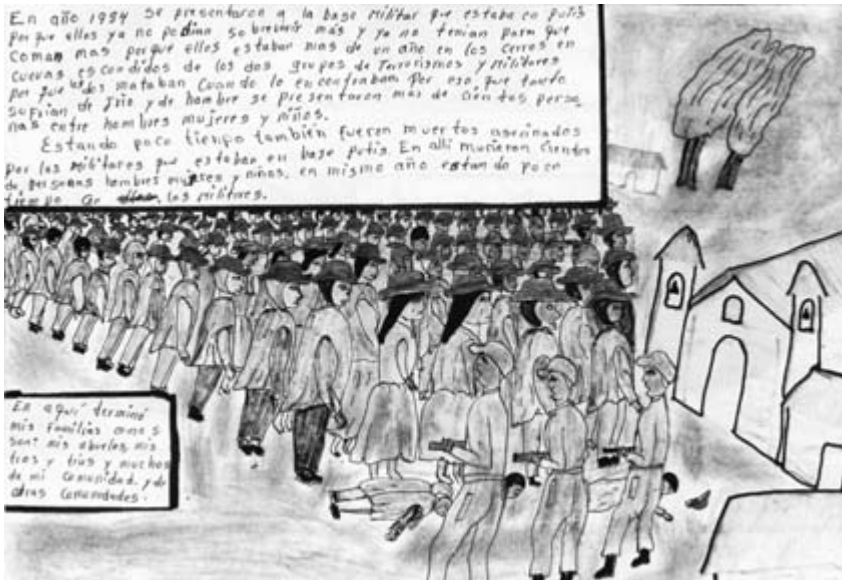 En año 1984 se presentaron a la base Militar que estaba en putis
porque ellos ya no podian sobrebivir más y ya no tenian para que
Coman mas porque ellos estaban mas de un año en los cerros en
cuevas escondidos de los dos grupos de Terrorismos y Militares
por que los dos mataban Cuando lo encontraban Por eso, que tanto
sufrian de frio y de hambre se presentaron más de cientos perso
nas entre hombres mujeres y niños.
Estando poco tiempo también fueron muertos asecinados
Por los Militares que estaban en base Putis. En alli murieron Cientos
de personas hombres mujeres y niños, en mismo año estando poco
tiempo los Militares.
En aquí terminó
mis Familias como s
son: mis abuelos, mis
tios y tías y muchos
de mi Comunidad y de
otras Comunidades.